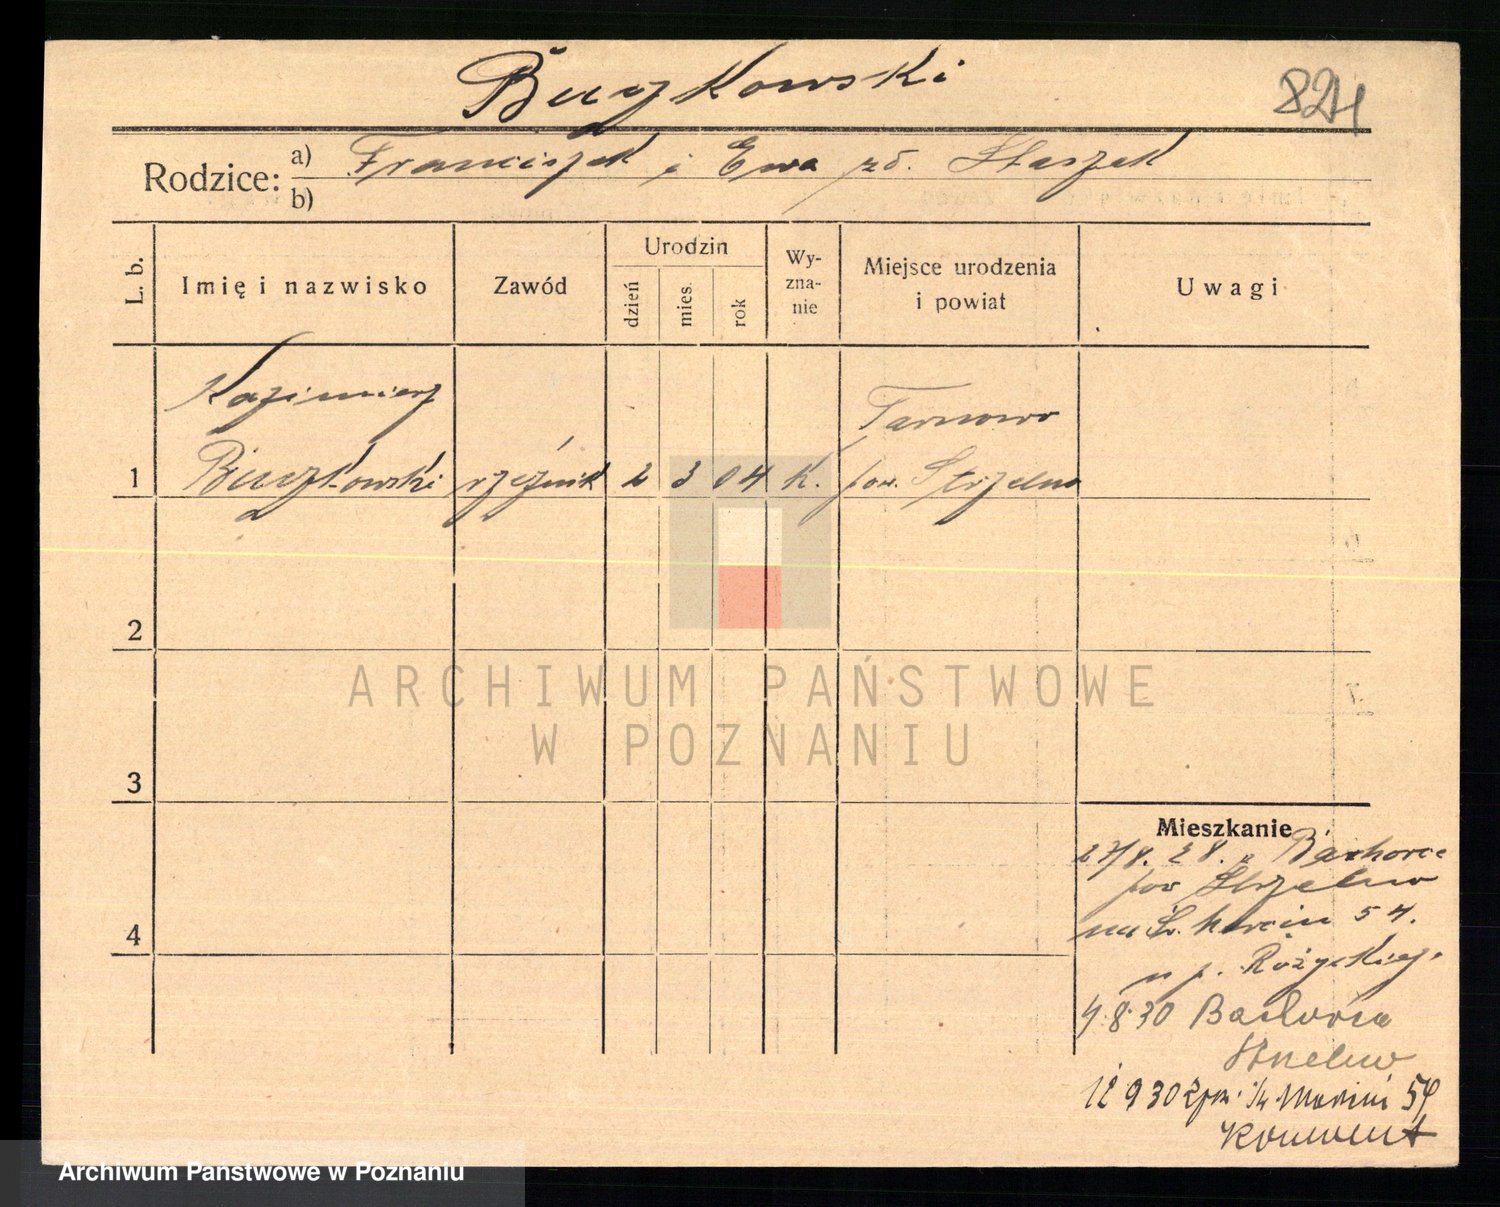 Buczkowski
824
Rodzice: a) Franciszek i Ewa zd. Staszek
b)
L. b.
Imię i nazwisko
Zawód
Urodzin
dzień
mies.
rok
Wy-
zna-
nie
Miejsce urodzenia
i powiat
Uwagi
Kazimierz
Tarnowo
1 Buczkowski rzeźnik 2 3 04 K. pow. Strzelno
2
3
4
Mieszkanie
27/8. 28. z Bachorce
pow Strzelno
na Św. Marcin 54.
u p. Różyckiej.
4 8 30 Bachorce
Strzelno
12 9 30 Marcin 54
ARCHIWUM PAŃSTWOWE
W POZNANIU
Archiwum Państwowe w Poznaniu